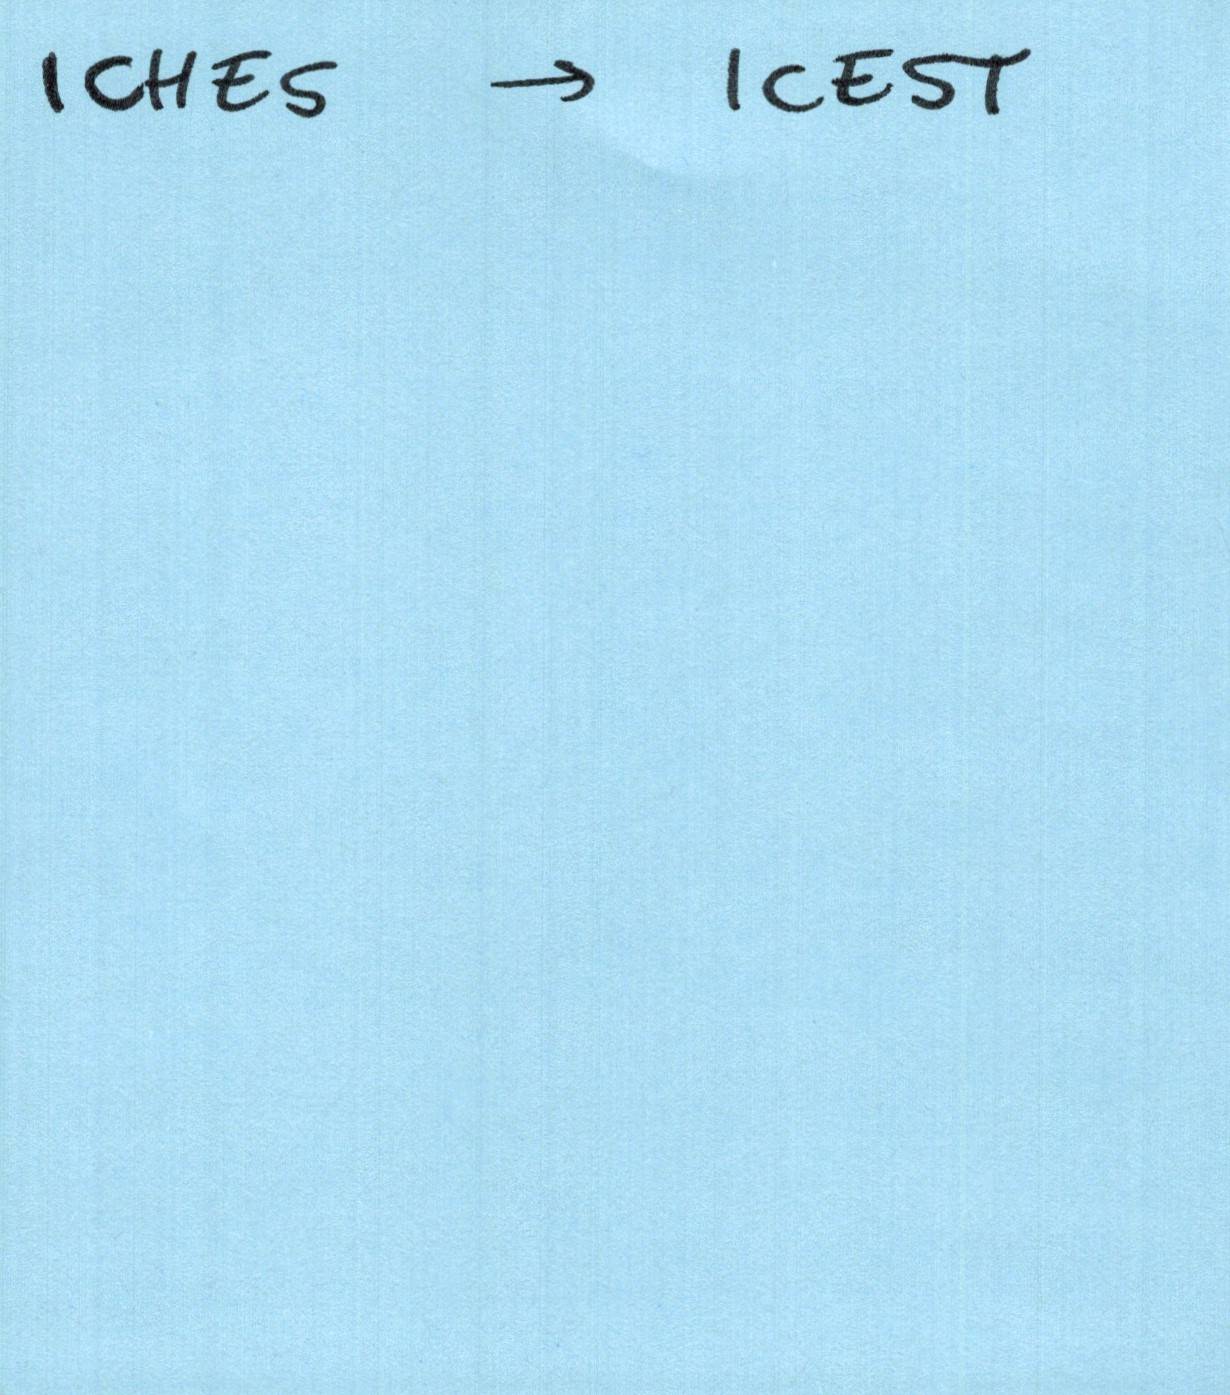 ICHES → ICEST